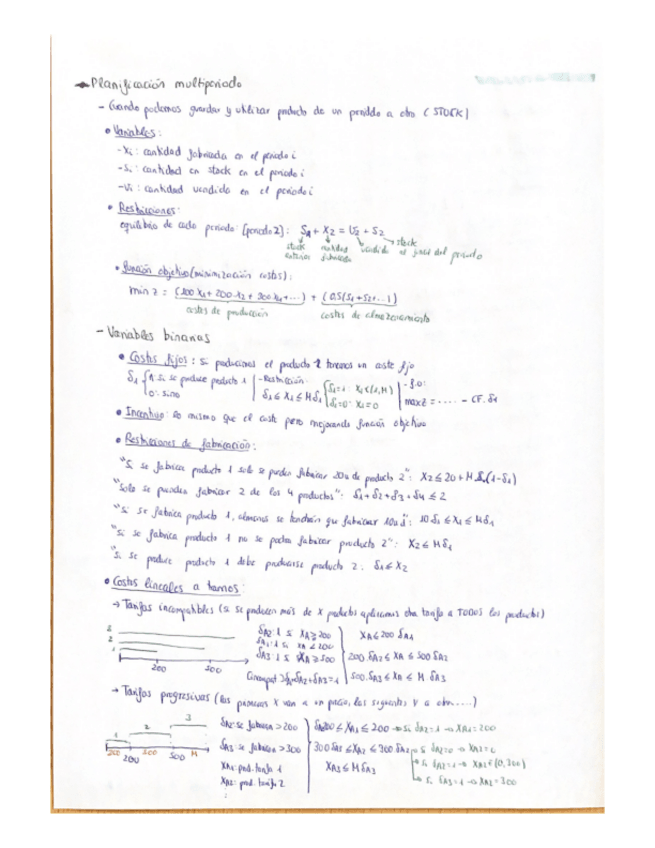 Planificación multiperiodo
- Cuando podemos guardar y utilizar producto de un periodo a otro (STOCK)
• Variables:
- Xi: cantidad fabricada en el periodo i
- Si: cantidad en stock en el periodo i
- Vi: cantidad vendida en el periodo i
• Restricciones:
equilibrio de cada periodo [periodo 2]: S1 + X2 = V2 + S2
stock anterior cantidad fabricada vendida stock al final del periodo
• función objetivo (minimización costes):
min z = (100 X1 + 200 X2 + 300 X4 + ...) + (0,5(S1+S2+...)
costes de producción costes de almacenamiento
- Variables binarias
• Costes fijos: si producimos el producto 1 tenemos un coste fijo
δ1 { 1: si se produce producto 1 | - Restricción: { δ1=1: X1 ∈ (1,M) | - f.o:
0: sino | δ1 ≤ X1 ≤ Mδ1 | δ1=0: X1=0 | max z = ..... - CF. δ1
• Incentivo: lo mismo que el coste pero mejorando función objetivo
• Restricciones de fabricación:
"Si se fabrica producto 1 solo se pueden fabricar 20u de producto 2": X2 ≤ 20 + M (1-δ1)
"Solo se pueden fabricar 2 de los 4 productos": δ1 + δ2 + δ3 + δ4 ≤ 2
"Si se fabrica producto 1, almenos se tendrán que fabricar 10u": 10 δ1 ≤ X1 ≤ Mδ1
"Si se fabrica producto 1 no se podra fabricar producto 2": X2 ≤ Mδ1
"Si se produce producto 1 debe producirse producto 2: δ1 ≤ X2
• Costes lineales a tramos:
→ Tarifas incompatibles (si se producen más de X productos aplicamos otra tarifa a TODOS los productos)
3
2
1
200 500
δA2: 1 si XA ≥ 200
δA1: 1 si XA ≤ 200
δA3: 1 si XA ≥ 500
δA2 + δA3 = 1
XA ≤ 200 δA1
200 δA2 ≤ XA ≤ 500 δA2
500 δA3 ≤ XA ≤ M. δA3
→ Tarifas progresivas (los primeros X van a un precio, los siguientes V a otro.....)
1 2 3
200 300 M
200 500
δA2: se fabrica > 200
δA3: se fabrica > 300
XA1: prod. tarifa 1
XA2: prod. tarifa 2
δA2 200 ≤ XA1 ≤ 200 → Si δA2=1 → XA1=200
300 δA3 ≤ XA2 ≤ 300 δA2 → Si δA2=0 → XA2=0
XA3 ≤ M δA3
→ Si δA2=1 → XA2 ∈ (0,300)
→ Si δA3=1 → XA2=300